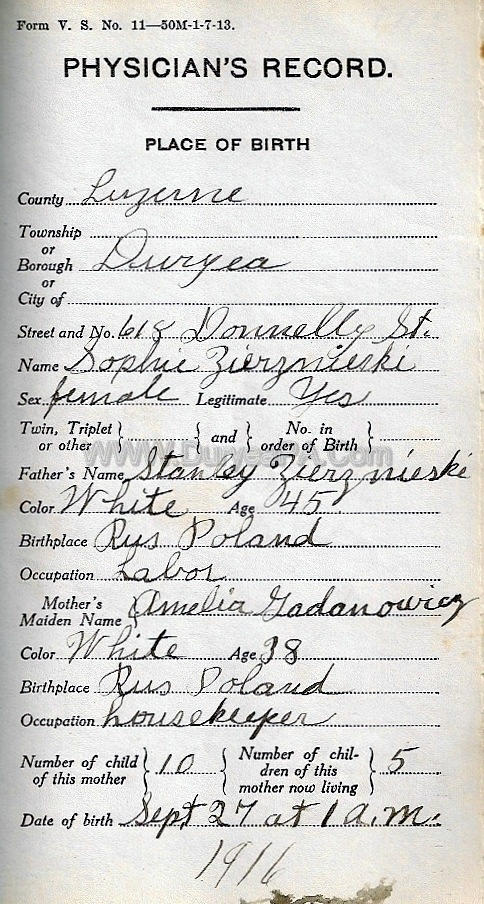 Form V. S. No. 11—50M-1-7-13.
PHYSICIAN'S RECORD.
PLACE OF BIRTH
County Luzerne
Township
or
Borough Duryea
or
City of
Street and No. 618 Donnelly St.
Name Sophie Zierznieski
Sex female Legitimate Yes
Twin, Triplet or other } { and } No. in order of Birth }
WWW.DuryeaPA.Com
Father's Name Stanley Zierznieski
Color White Age 45
Birthplace Rus Poland
Occupation Labor
Mother's Maiden Name } Amelia Gadanowicz
Color White Age 38
Birthplace Rus Poland
Occupation housekeeper
Number of child of this mother } 10 { Number of chil-dren of this mother now living } 5
Date of birth Sept 27 at 1 a.m.
1916